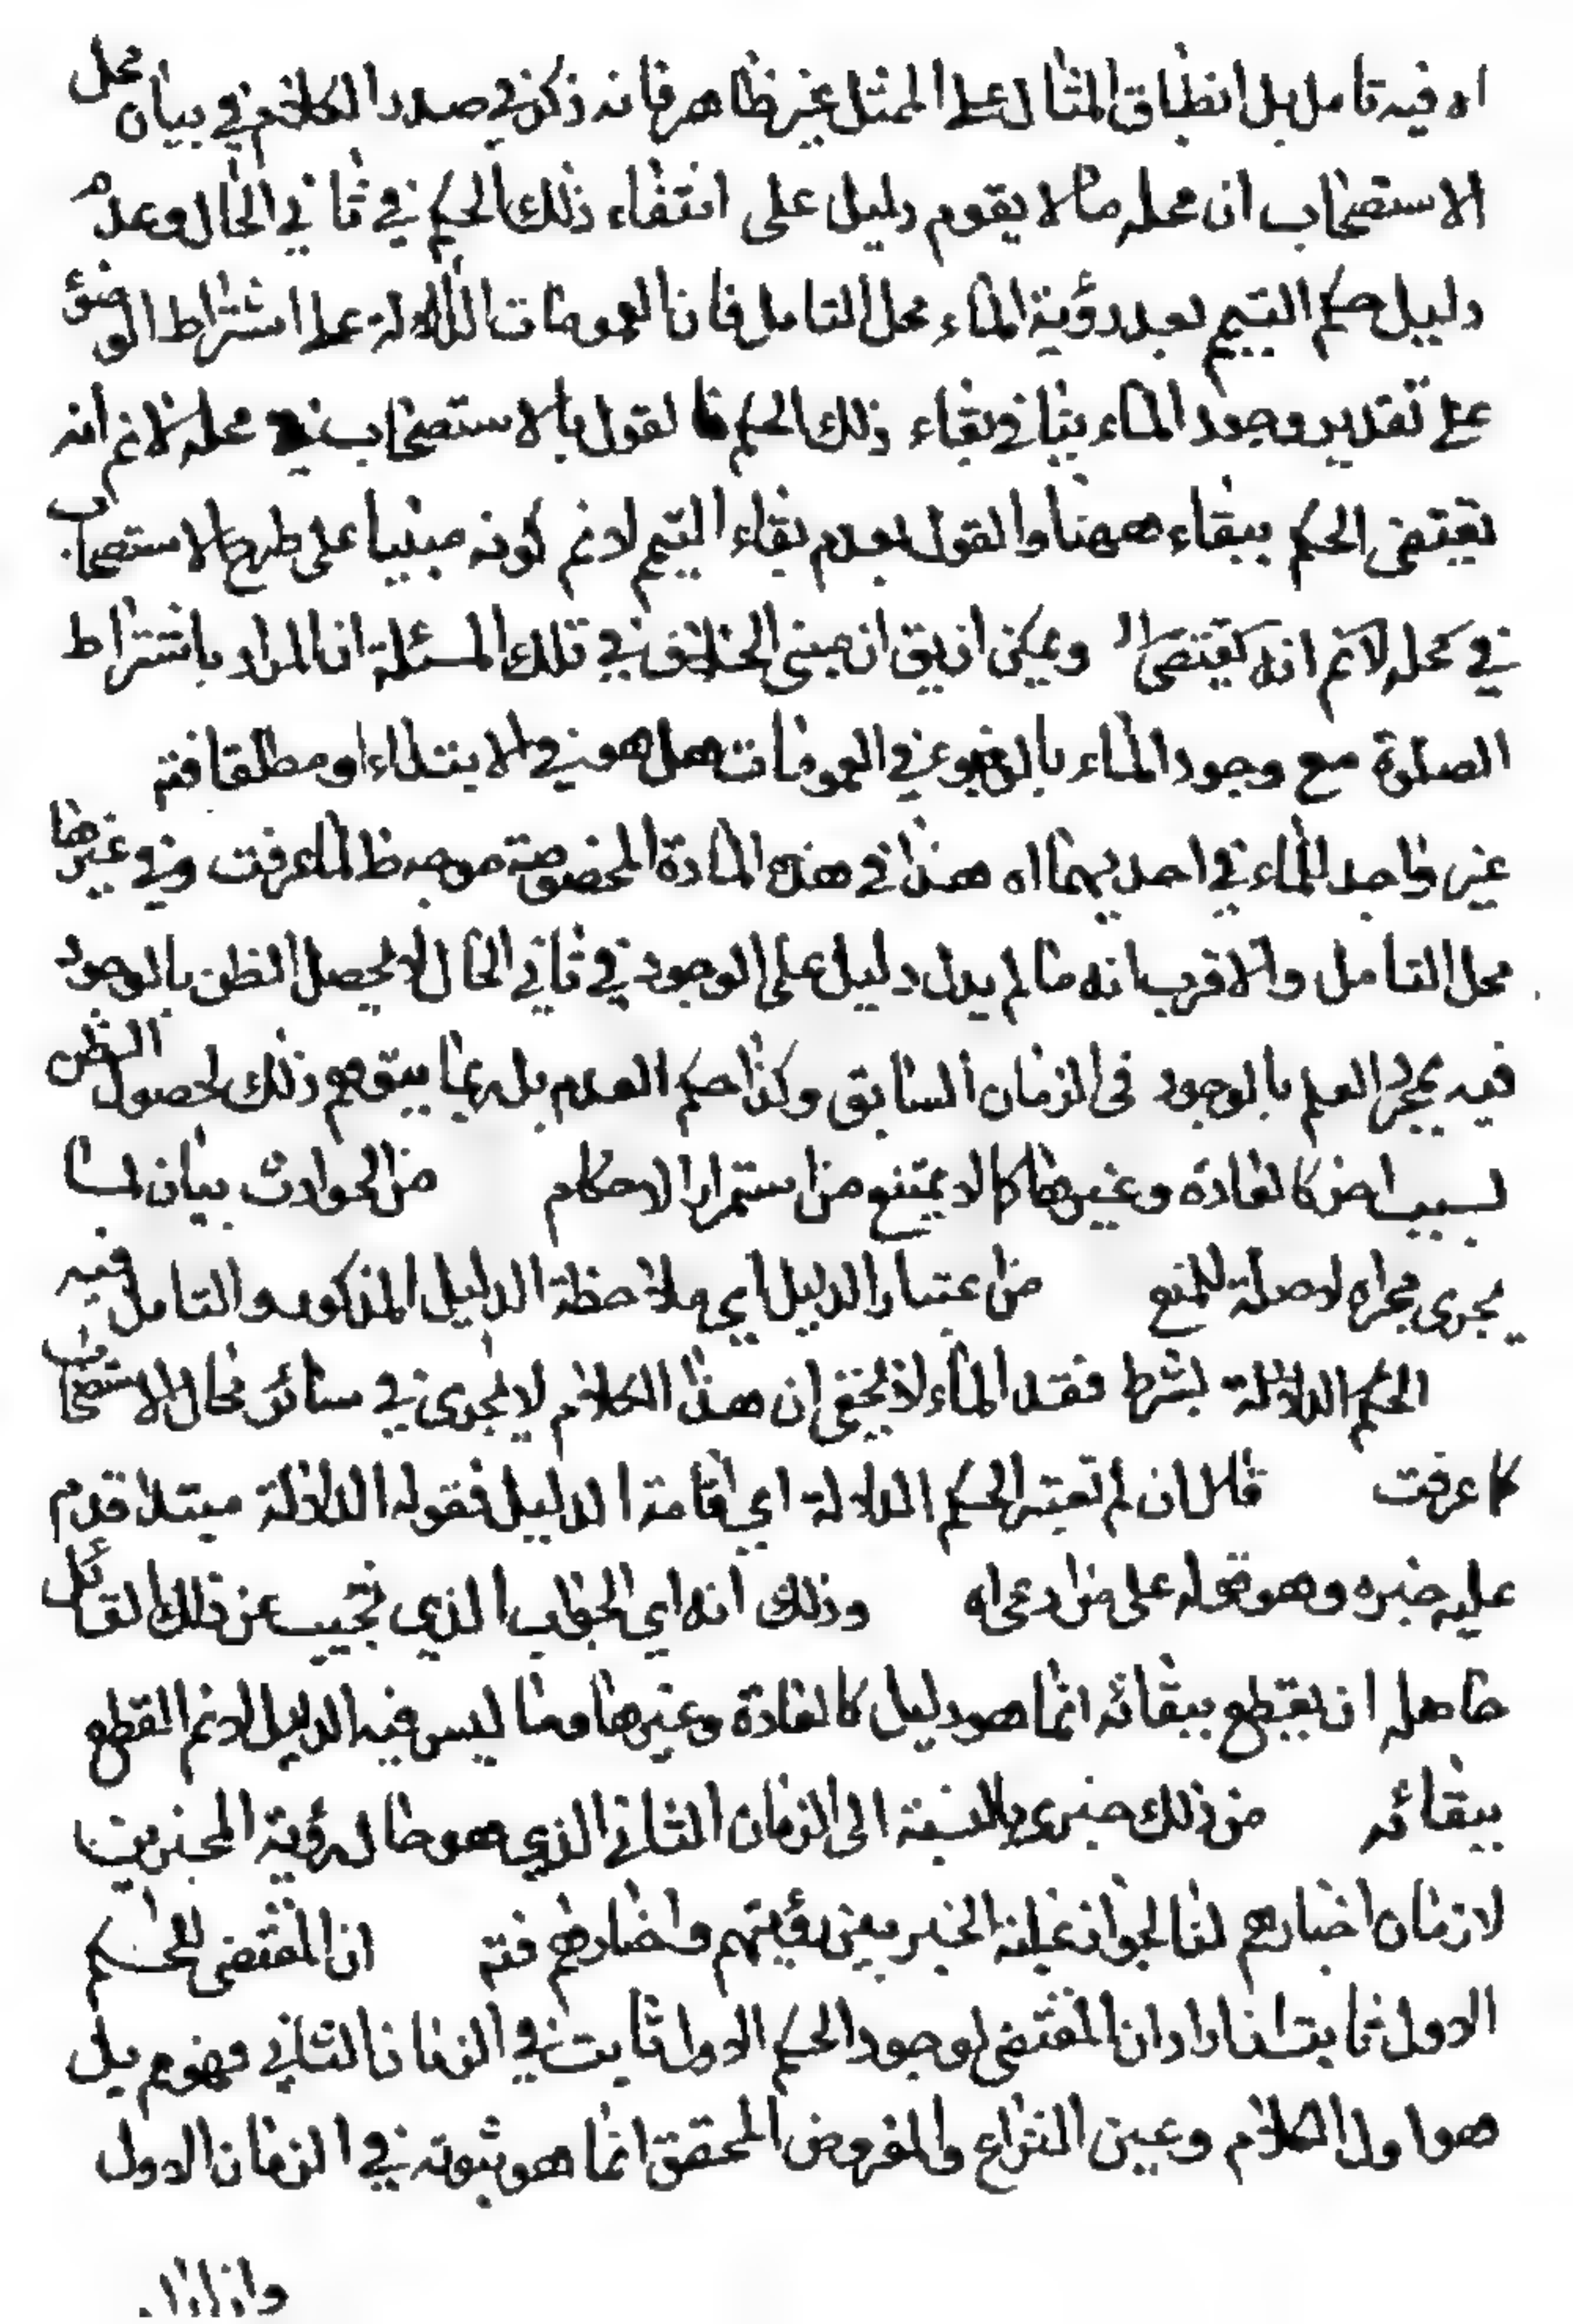 اه فيه تامل بل انطباق المثال على الممثل غير ظاهر فانه ذكر في صدر الكلام في بيان محل
الاستصحاب ان محله ما لا يقوم دليل على انتفاء ذلك الحكم في ثاني الحال وعدم
دليل حكم التيمم بعد رؤية الماء محل التامل فان العمومات الدالة على اشتراط الوضوء
على تقدير وجود الماء ينافي بقاء ذلك الحكم فالقول بالاستصحاب في محله لانم انه
يقتضى الحكم ببقاء ههنا والقول بعدم بقاء التيمم لانم كونه مبنيا على طرح الاستصحاب
في محله لانم انه يقتضى اه ويمكن ان يق ان مبنى الخلاف في تلك المسئلة ان المراد باشتراط
الصلوة مع وجود الماء بالوضوء في العمومات هل هو في الابتداء او مطلقا فتم
غير واجد للماء في احديهما اه هذا في هذه المادة المخصوصة موجه ظ لما عرفت وفي غيرها
محل التامل والاقرب انه ما لم يدل دليل على الوجود في ثاني الحال لا يحصل الظن بالوجود
فيه بمجرد العلم بالوجود في الزمان السابق وكذا حكم العدم بل ربما يتوهم ذلك لحصول الظن
بسبب اخر كالعادة وغيرها كما لا يمتنع من استمرار الاحكام من الحوادث بيان لما
يجرى مجراه لا صلة للمنع من اعتبار الدليل اي ملاحظة الدليل المذكور والتامل فيه
الحكم الدلالة بشرط فقد الماء لا يخفى ان هذا الكلام لا يجرى في سائر محال الاستصحاب
كما عرفت قال ان لم تعتبر الحكم الدلالة اي اقامة الدليل فقوله الدلالة مبتدا قدم
عليه خبره وهو قوله على من ادعى اه وذلك انه اي الجواب الذي نجيب عن ذلك القائل
حاصله ان يقطع ببقائه انما هو دليل كالعادة وغيرها وما ليس فيه الدليل لانم القطع
ببقائه من ذلك خبرى بالنسبة الى الزمان الثاني الذي هو حال رؤية المخبرين
لا زمان اخبارهم لنا لجواز غيبة الخبر بين رؤيتهم واخبارهم فتم ان المقتضى للحكم
الاول ثابت ان اراد ان المقتضى لوجود الحكم الاول ثابت في الزمان الثاني فهو مم بل
هو اول الكلام وعين النزاع والمفروض المحقق انما هو ثبوته في الزمان الاول